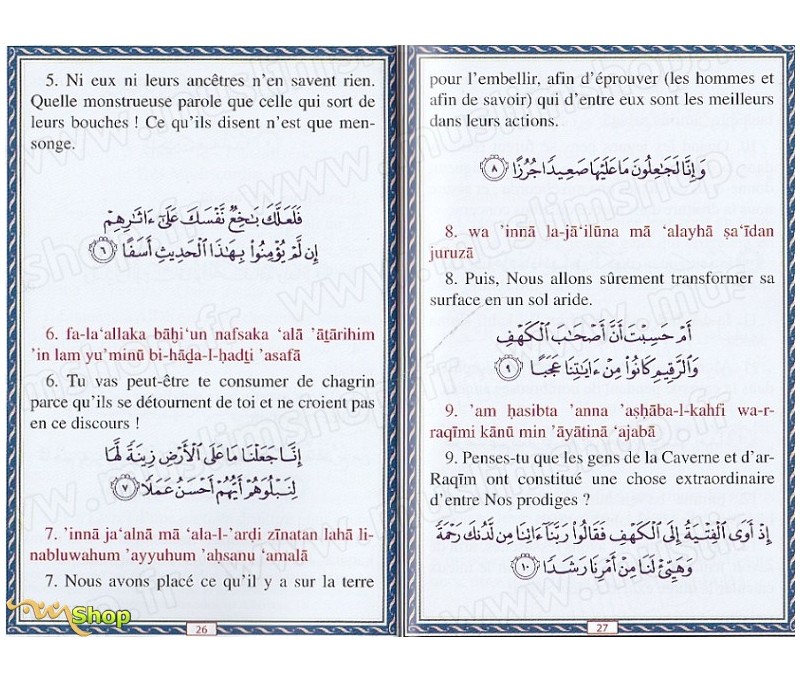 5. Ni eux ni leurs ancêtres n’en savent rien.
Quelle monstrueuse parole que celle qui sort de
leurs bouches ! Ce qu’ils disent n’est que men-
songe.
فَلَعَلَّكَ بَٰخِعٌ نَّفْسَكَ عَلَىٰٓ ءَاثَٰرِهِمْ
إِن لَّمْ يُؤْمِنُوا۟ بِهَٰذَا ٱلْحَدِيثِ أَسَفًا ٦
6. fa-la‘allaka bāẖi‘un nafsaka ‘alā ’āṯārihim
’in lam yu’minū bi-hāḏa-l-ḥadṯi ’asafā
6. Tu vas peut-être te consumer de chagrin
parce qu’ils se détournent de toi et ne croient pas
en ce discours !
إِنَّا جَعَلْنَا مَا عَلَى ٱلْأَرْضِ زِينَةً لَّهَا
لِنَبْلُوَهُمْ أَيُّهُمْ أَحْسَنُ عَمَلًا ٧
7. ’innā ja‘alnā mā ‘ala-l-’arḍi zīnatan lahā li-
nabluwahum ’ayyuhum ’aḥsanu ‘amalā
7. Nous avons placé ce qu’il y a sur la terre
26
Shop
pour l’embellir, afin d’éprouver (les hommes et
afin de savoir) qui d’entre eux sont les meilleurs
dans leurs actions.
وَإِنَّا لَجَٰعِلُونَ مَا عَلَيْهَا صَعِيدًا جُرُزًا ٨
8. wa ’innā la-jā‘ilūna mā ‘alayhā ṣa‘īdan
juruzā
8. Puis, Nous allons sûrement transformer sa
surface en un sol aride.
أَمْ حَسِبْتَ أَنَّ أَصْحَٰبَ ٱلْكَهْفِ
وَٱلرَّقِيمِ كَانُوا۟ مِنْ ءَايَٰتِنَا عَجَبًا ٩
9. ’am ḥasibta ’anna ’aṣḥāba-l-kahfi wa-r-
raqīmi kānū min ’āyātinā ‘ajabā
9. Penses-tu que les gens de la Caverne et d’ar-
Raqīm ont constitué une chose extraordinaire
d’entre Nos prodiges ?
إِذْ أَوَى ٱلْفِتْيَةُ إِلَى ٱلْكَهْفِ فَقَالُوا۟ رَبَّنَآ ءَاتِنَا مِن لَّدُنكَ رَحْمَةً
وَهَيِّئْ لَنَا مِنْ أَمْرِنَا رَشَدًا ١٠
27
www.muslimshop.fr